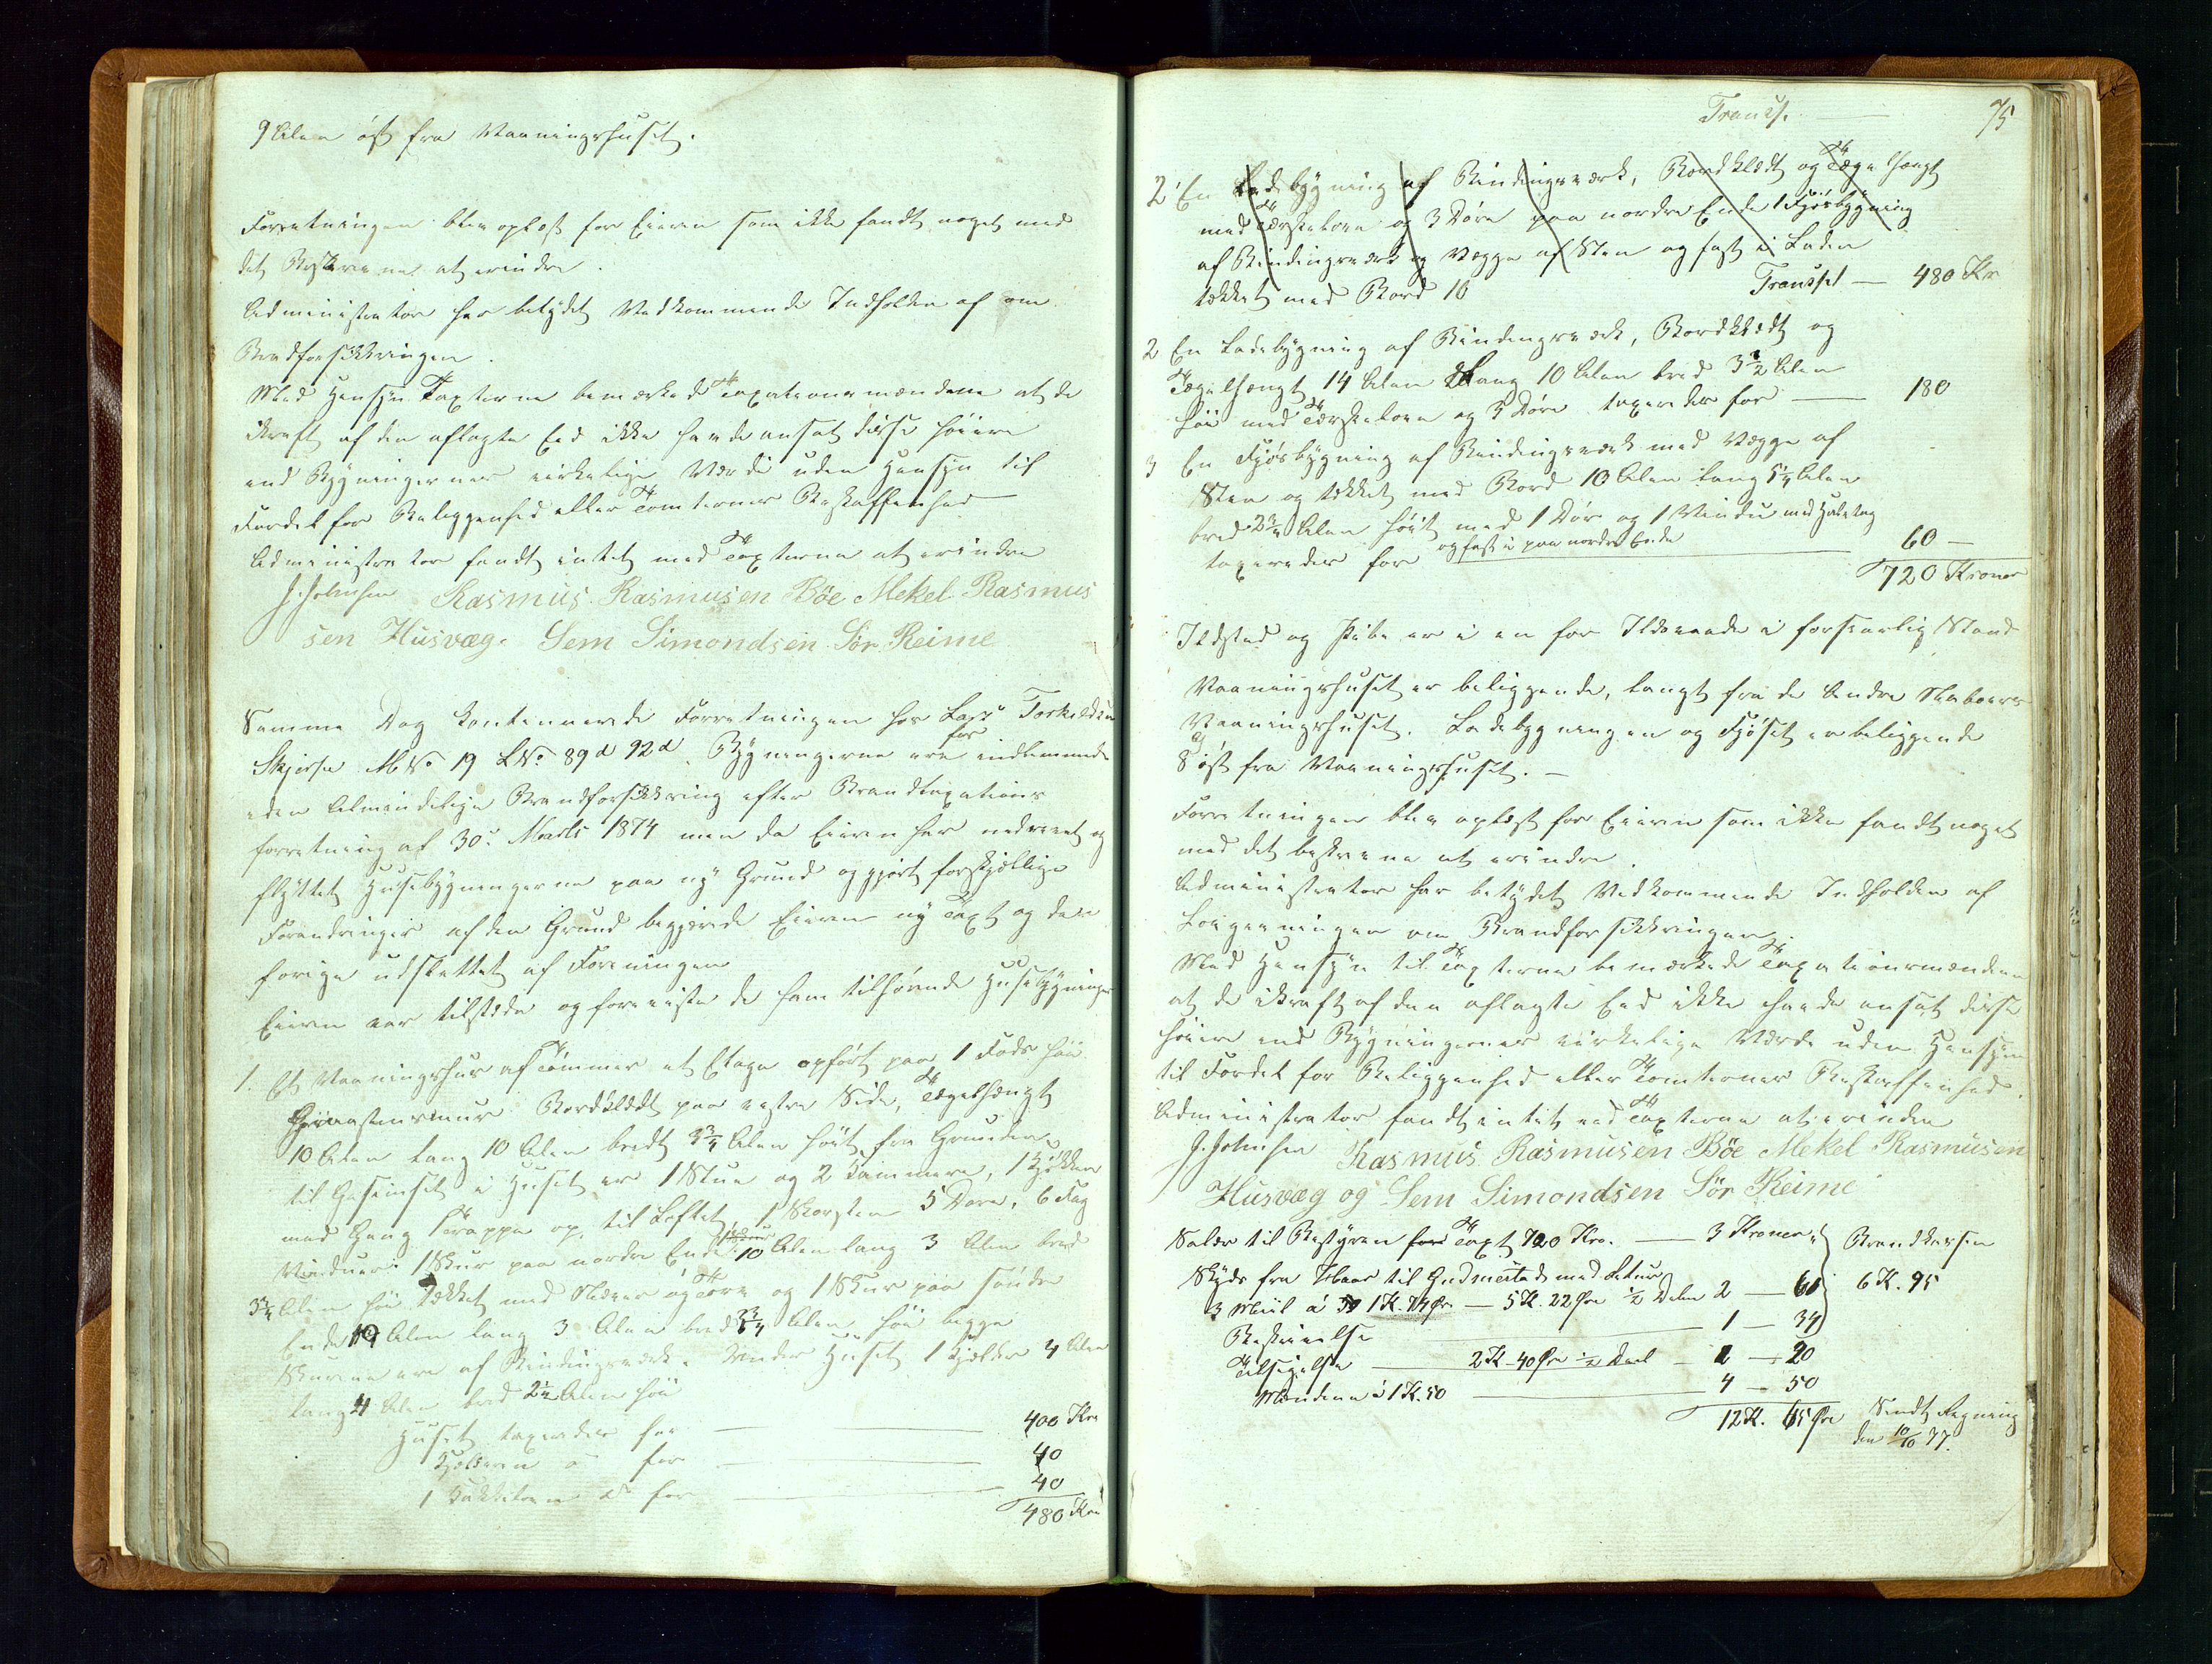 9 Alen öst fra Vaaningshuset.
Forretningen blev oplæst for Eieren som ikke fandt noget med
det Beskrevne at erindre.
Administrator har betydet Vedkommende Indholden af om
Brandforsikkringen.
Med Hensyn Taxterne bemærkede Taxationsmændene at de
ikraft af den aflagte Eed ikke havde ansat disse höiere
end Bygningernes virkelige Værdi uden Hensyn til
Fordel for Beliggenhed eller Tomternes Beskaffenhed
Administrator fandt intet med Taxterne at erindre
J. Johnsen Rasmus Rasmusen Böe Mekel Rasmus
sen Husvæg. Sem Simondsen Sör Reime
Samme Dag kontinuerede Forretningen hos Lars Torkildsen
Skjerse MNo 19 LNo 89d 92d. Bygningerne ere för indlemmede
i den Almindelige Brandforsikkring efter Brandtaxations
forretning af 30d Marts 1874 men da Eieren har nedrevet og
flyttet Husebygningerne paa ny Grund og gjort forskjellige
Forandringer af den Grund begjærede Eieren ny Taxt og den
forige udslettet af Foreningen
Eieren var tilstede og foreviste de ham tilhörende Husebygninger
1. Et Vaaningshus af Tömmer et Etage opfört paa 1 Fods höi
Graastensmur Bordklædt paa vestre Side, Tægelhængt
10 Alen lang 10 Alen bredt 3 3/4 Alen höit fra Grunden
til Gesimset i Huset er 1 Stue og 2 Kammere, 1 Kjökken
med Gang Trappe op til Loftet 1 Skorsten 5 Döre, 6 Fag
Vinduer 1 Skur paa nordre Ende 10 Alen lang 3 Alen bred
3 3/4 Alen höi Tækket med Næver og Torv og 1 Skur paa söndre
Ende 10 Alen lang 3 Alen bred 3 3/4 Alen höi begge
Skurene ere af Bindingsværk. Under Huset 1 Kjelder 4 Alen
lang 4 Alen bred 2 1/2 Alen höi
Huset taxeredes for 400 Kr
Kjelderen for 40
1 Kakkelovn for 40
480 Kr
Transp. 75
2 En Ladebygning af Bindingsværk, Bordklædt og Tægelhængt
med Tærskelove og 3 Döre paa nordre Ende 1 Fjösbygning
af Bindingsværk og Vægge af Sten og fast i Laden
tækket med Bord 10 Transpt — 480 Kr
2 En Ladebygning af Bindingsværk, Bordklædt og
Tægelhængt 14 Alen lang 10 Alen bred 3 1/2 Alen
höi med Tærskelove og 3 Döre taxeredes for — 180
3 En Fjösbygning af Bindingsværk med Vægge af
Sten og tækket med Bord 10 Alen lang 5 1/4 Alen
bred 2 3/4 Alen höit med 1 Dör og 1 Vindue med Halvtag
taxeredes for og fast i paa nordre Ende 60 —
720 Kroner
Ildsted og Pibe er i en for Ildsvaade i forsvarlig Stand
Vaaningshuset er beliggende, langt fra de Andre Naboers
Vaaningshuset. Ladebygningen og Fjöset er beliggende
8 öst fra Vaaningshuset. —
Forretningen blev oplæst for Eieren som ikke fandt noget
med det beskrevne at erindre.
Administrator har betydet Vedkommende Indholden af
Lovgivningen om Brandforsikkringen.
Med Hensyn til Taxterne bemærkede Taxationsmændene
at de ikraft af den aflagte Eed ikke havde ansat disse
höiere end Bygningernes virkelige Værdi uden Hensyn
til Fordel for Beliggenhed eller Tomternes Beskaffenhed.
Administrator fandt intet ved Taxterne at erindre
J. Johnsen Rasmus Rasmusen Böe Mekel Rasmusen
Husvæg og Sem Simondsen Sör Reime
Salær til Bestyren for Taxt 720 Kr. — 3 Kroner Brandkassen
Skyds fra Haar til Gudmestad med Retur
3 Miil á 1 K. 74 Öre — 5 K. 22 Öre 1/2 Delen 2 — 61 6 K. 95
Beskrivelse 1 — 34
Tilsigelse 2 K — 40 Öre 1/2 Deel — 1 — 20
Mændene á 1 K. 50 4 — 50
12 K. 65 Öre Sendt Regning
den 10/10 77.